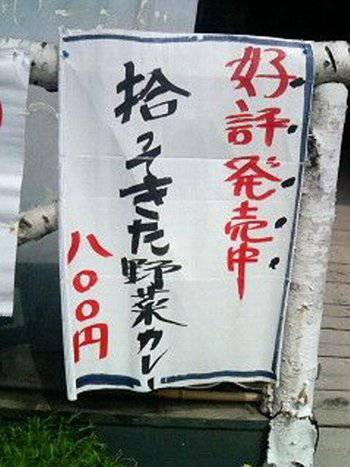 好評発売中
拾ってきた野菜カレー
八〇〇円